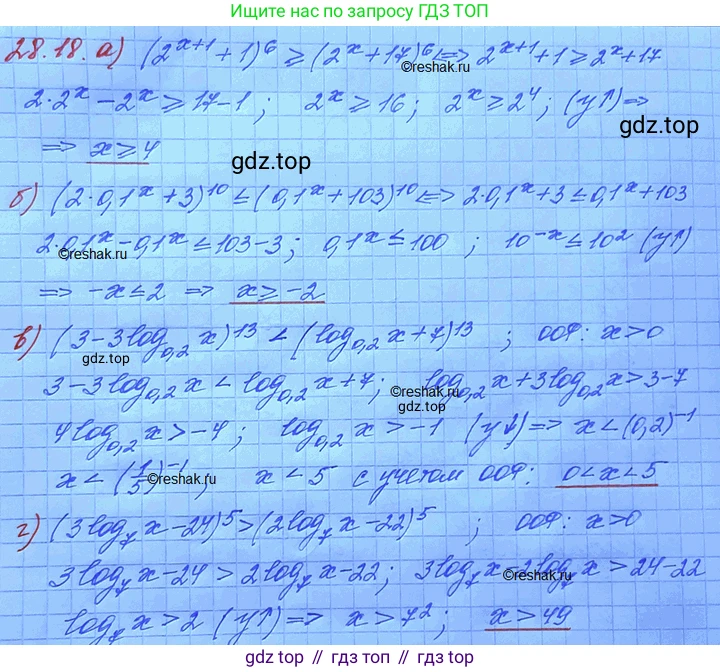 Ищите нас по запросу ГДЗ ТОП
28.18. а) (2^(x+1) + 1)^6 ≥ (2^x + 17)^6 ⇔ 2^(x+1) + 1 ≥ 2^x + 17
©reshak.ru
2·2^x − 2^x ≥ 17−1 ; 2^x ≥ 16 ; 2^x ≥ 2^4 ; (y↑) ⇒
gdz.top
⇒ x ≥ 4
gdz.top
б) (2·0,1^x + 3)^10 ≤ (0,1^x + 103)^10 ⇔ 2·0,1^x + 3 ≤ 0,1^x + 103
2·0,1^x − 0,1^x ≤ 103−3 ; 0,1^x ≤ 100 ; 10^(−x) ≤ 10^2 (y↑)
©reshak.ru
⇒ −x ≤ 2 ⇒ x ≥ −2
в) (3−3log_0,2 x)^13 < (log_0,2 x + 7)^13 ; ООФ: x > 0
gdz.top
3−3log_0,2 x < log_0,2 x + 7 ; log_0,2 x + 3log_0,2 x > 3−7
©reshak.ru
gdz.top
4log_0,2 x > −4 ; log_0,2 x > −1 (y↓) ⇒ x < (0,2)^−1
x < (1/5)^−1 , x < 5 с учетом ООФ: 0 < x < 5
©reshak.ru
г) (3log_7 x − 24)^5 > (2log_7 x − 22)^5 ; ООФ: x > 0
3log_7 x − 24 > 2log_7 x − 22 ; 3log_7 x − 2log_7 x > 24−22
©reshak.ru
log_7 x > 2 (y↑) ⇒ x > 7^2 ; x > 49
gdz.top // гдз.топ // gdz.top // гдз.топ // gdz.top